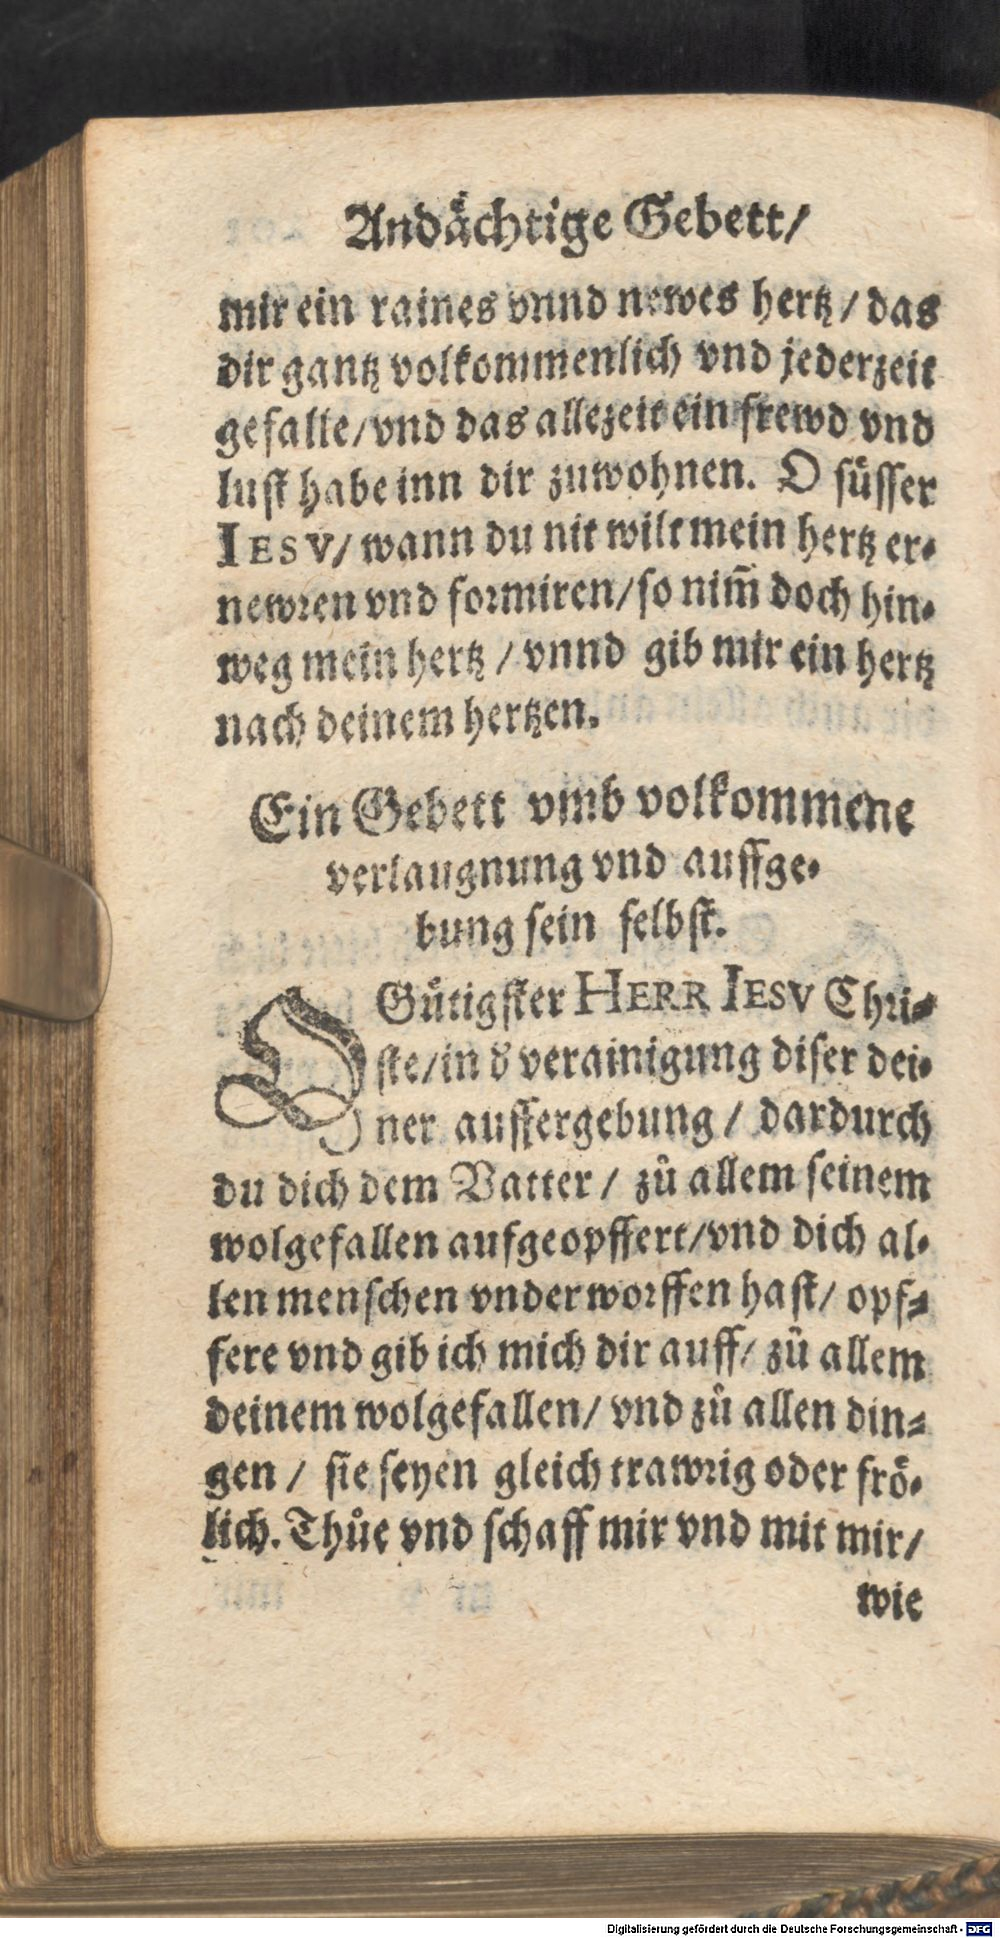 Andaͤchtige Gebett/
mir ein raines vnnd newes hertz / das
dir gantz volkommenlich vnd jederzeit
gefalle/vnd das allezeit ein frewd vnd
lust habe inn dir zuwohnen. O suͤsser
IESV/ wann du nit wilt mein hertz er-
newren vnd formiren/so nim̃ doch hin-
weg mein hertz / vnnd gib mir ein hertz
nach deinem hertzen.
Ein Gebett vmb volkommene
verlaugnung vnd auffge-
bung sein selbst.
O Guͤtigster HERR IESV Chri-
ste/in d̕ verainigung diser dei-
ner auffergebung / dardurch
du dich dem Vatter / zuͦ allem seinem
wolgefallen aufgeopffert/vnd dich al-
len menschen vnderworffen hast/ opf-
fere vnd gib ich mich dir auff/ zuͦ allem
deinem wolgefallen/ vnd zuͦ allen din-
gen / sie seyen gleich trawrig oder froͤ-
lich. Thuͦe vnd schaff mir vnd mit mir/
wie
Digitalisierung gefördert durch die Deutsche Forschungsgemeinschaft - DFG